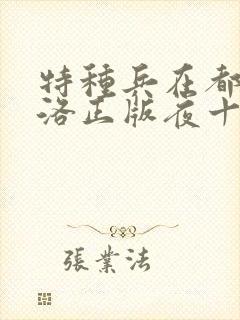 特種兵在都
洛正版夜十
張業法